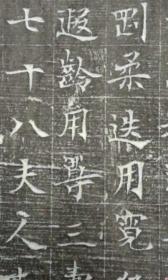 剛柔迭用寬
遐齡用奪三壽
七十八夫人